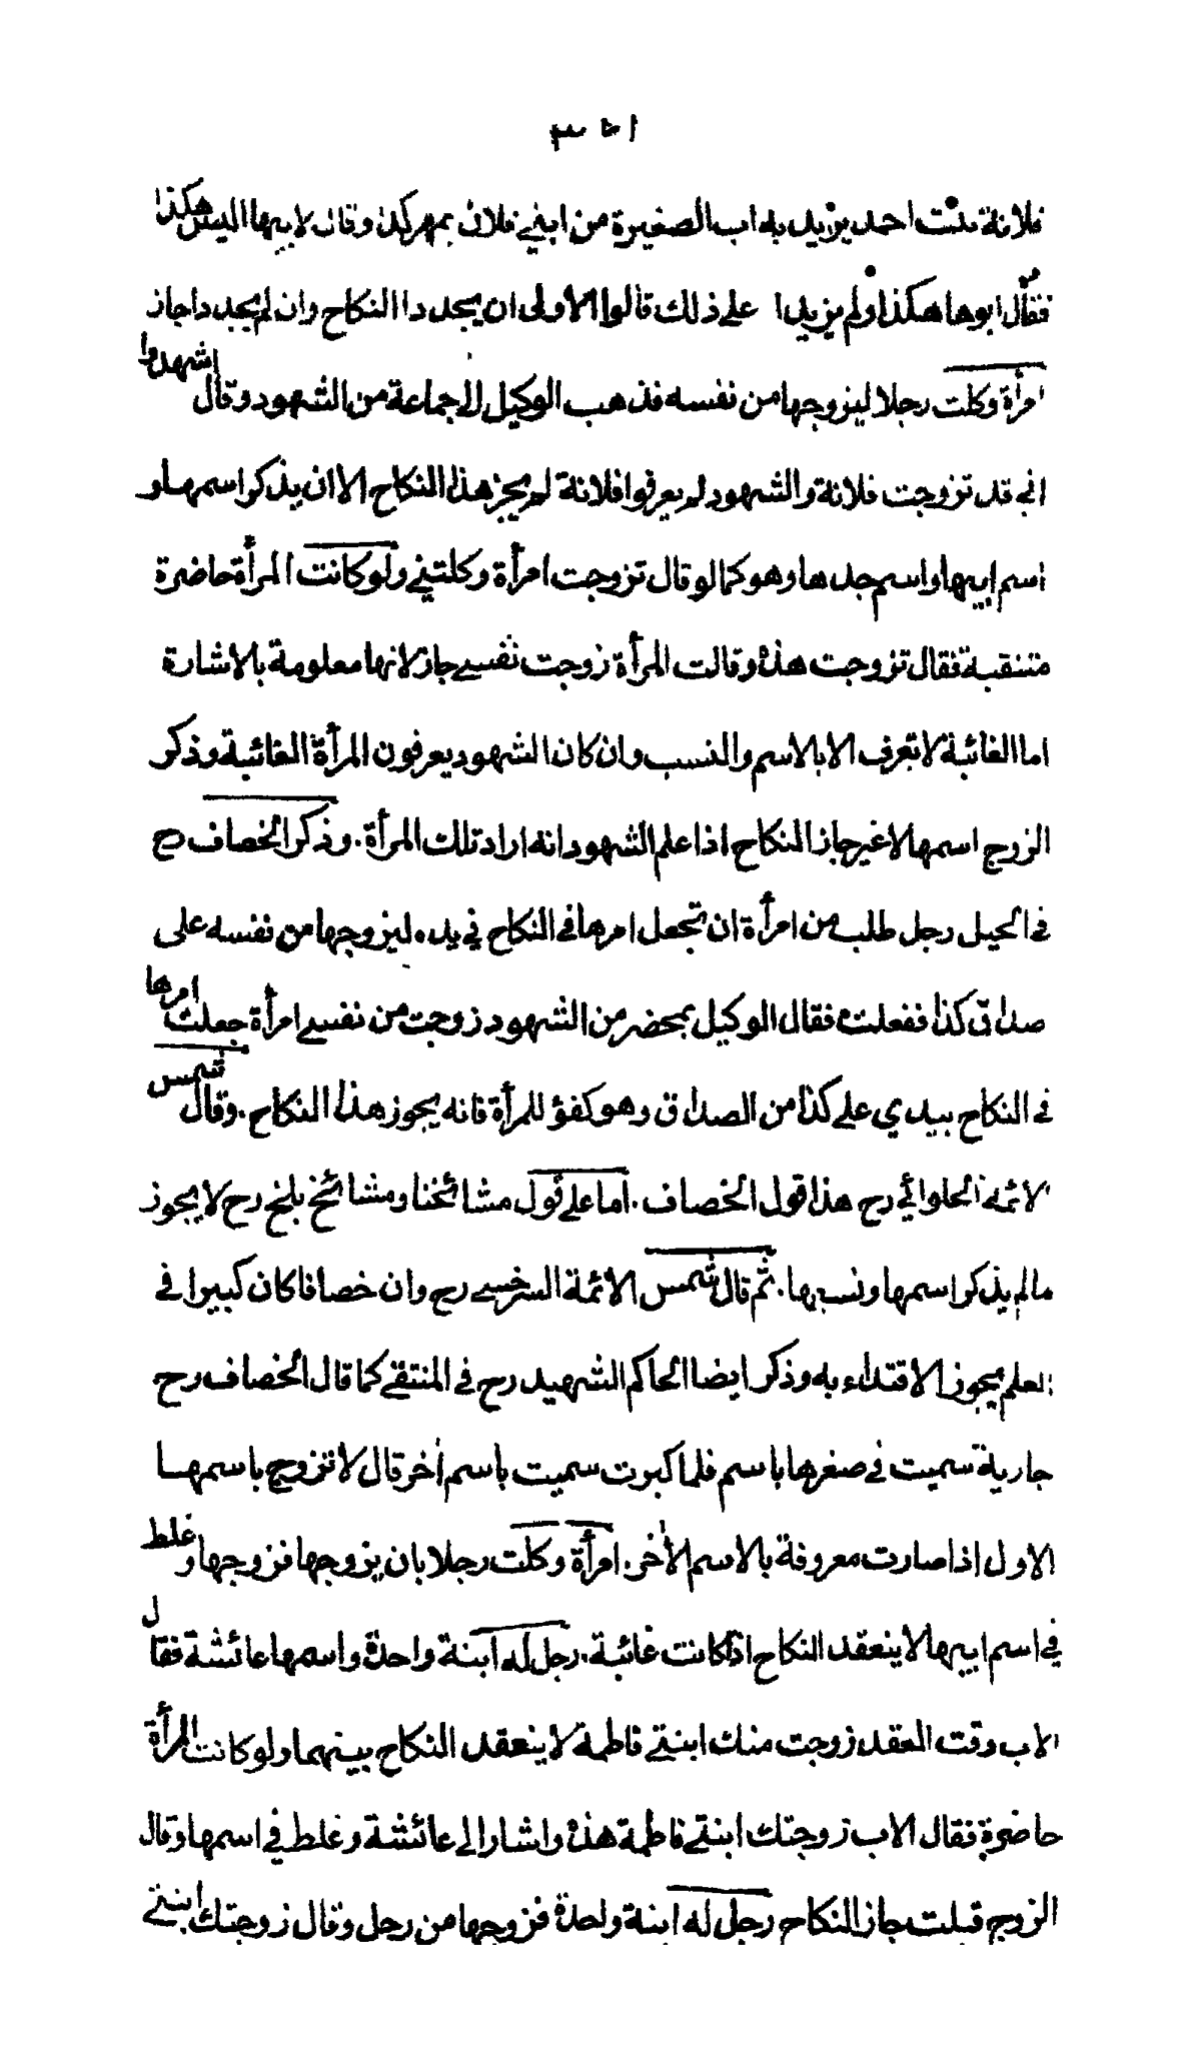 ٣٥١
فلانة بنت احمد يزيد به اب الصغيرة من ابني فلان بمهر كذا وقال لابيها اليس هكذا
فقال ابوها هكذا ولم يزيدا على ذلك قالوا الاولى ان يجددا النكاح وان لم يجددا جاز
امرأة وكلت رجلا ليزوجها من نفسه فذهب الوكيل الى جماعة من الشهود وقال اشهدوا
اني قد تزوجت فلانة والشهود لم يعرفوا فلانة لم يجز هذا النكاح الا ان يذكر اسمها و
اسم ابيها واسم جدها وهو كما لو قال تزوجت امرأة وكلتني ولو كانت المرأة حاضرة
متنقبة فقال تزوجت هذه وقالت المرأة زوجت نفسي جاز لانها معلومة بالاشارة
اما الغائبة لا تعرف الا بالاسم والنسب وان كان الشهود يعرفون المرأة الغائبة وذكر
الزوج اسمها لا غير جاز النكاح اذا علم الشهود انه اراد تلك المرأة. وذكر الخصاف رح
في الحيل رجل طلب من امرأة ان تجعل امرها في النكاح في يده ليزوجها من نفسه على
صداق كذا ففعلت فقال الوكيل بمحضر من الشهود زوجت من نفسي امرأة جعلت امرها
في النكاح بيدي على كذا من الصداق وهو كفؤ للمرأة فانه يجوز هذا النكاح. وقال شمس
الائمة الحلوائي رح هذا قول الخصاف. اما على قول مشائخنا ومشائخ بلخ رح لا يجوز
ما لم يذكر اسمها ونسبها. ثم قال شمس الائمة السرخسي رح وان خصافا كان كبيرا في
العلم يجوز الاقتداء به وذكر ايضا الحاكم الشهيد رح في المنتقى كما قال الخصاف رح
جارية سميت في صغرها باسم فلما كبرت سميت باسم أخر قال لا تزوج باسمها
الاول اذا صارت معروفة بالاسم الأخر. امرأة وكلت رجلا بان يزوجها فزوجها وغلط
في اسم ابيها لا ينعقد النكاح اذا كانت غائبة. رجل له ابنة واحدة واسمها عائشة فقال
الاب وقت العقد زوجت منك ابنتي فاطمة لا ينعقد النكاح بينهما ولو كانت المرأة
حاضرة فقال الاب زوجتك ابنتي فاطمة هذه واشار الى عائشة وغلط في اسمها وقال
الزوج قبلت جاز النكاح رجل له ابنة واحدة فزوجها من رجل وقال زوجتك ابنتي